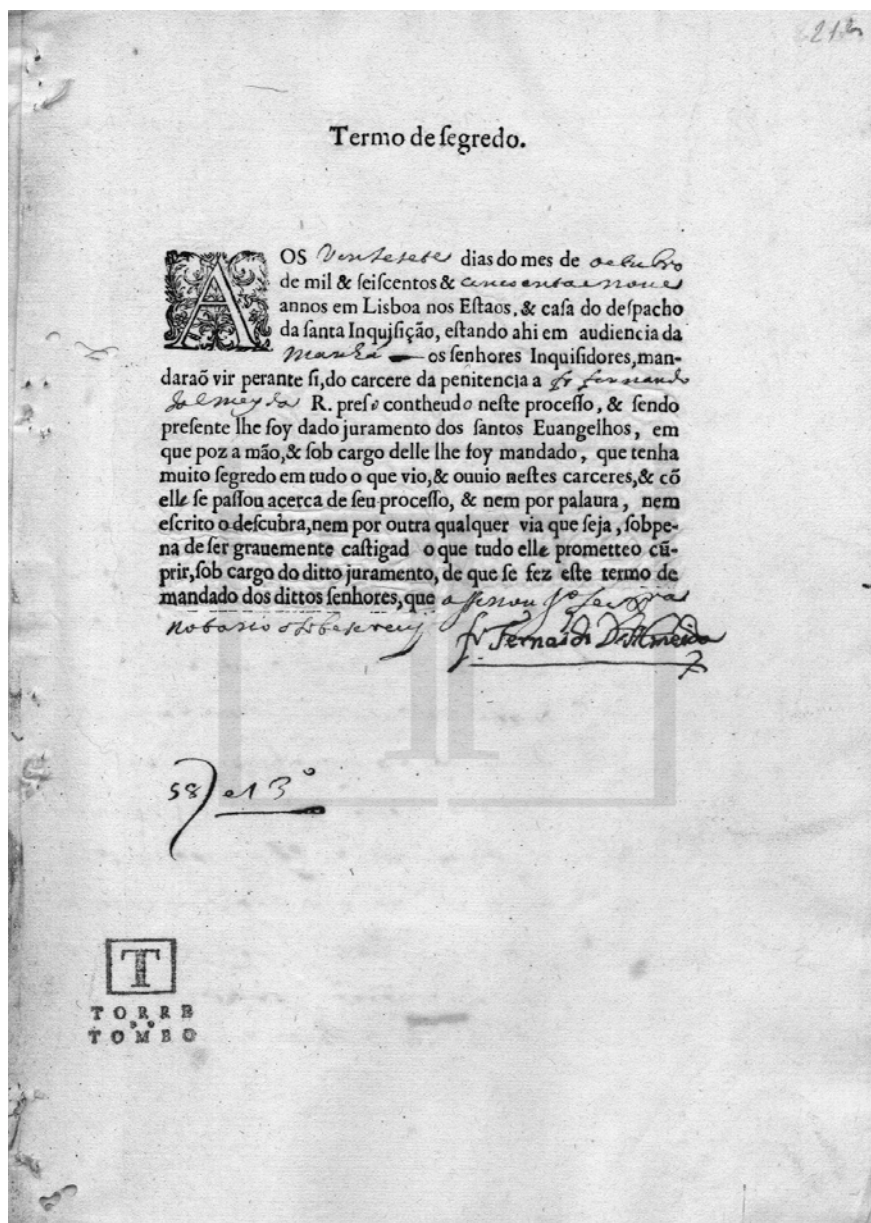 Termo de ſegredo.
AOS Vinte sete dias do mes de octubro
de mil & ſeiſcentos & cincoenta e noue
annos em Lisboa nos Eſtaos, & caſa do deſpacho
da ſanta Inquiſição, eſtando ahi em audiencia da
Manhã os ſenhores Inquiſidores, man-
daraõ vir perante ſi, do carcere da penitencia a fr fernando
dalmeyda R. preſo contheudo neſte proceſſo, & ſendo
preſente lhe foy dado juramento dos ſantos Euangelhos, em
que poz a mão, & ſob cargo delle lhe foy mandado, que tenha
muito ſegredo em tudo o que vio, & ouuio neſtes carceres, & cõ
elle ſe paſſou acerca de ſeu proceſſo, & nem por palaura, nem
eſcrito o deſcubra, nem por outra qualquer via que ſeja, ſobpe-
na de ſer grauemente caſtigad o que tudo elle prometteo cũ-
prir, ſob cargo do ditto juramento, de que ſe fez eſte termo de
mandado dos dittos ſenhores, que assinou
notario o sobescrevy
fr Fernando D'Almeida
58
TORRE
DO
TOMBO